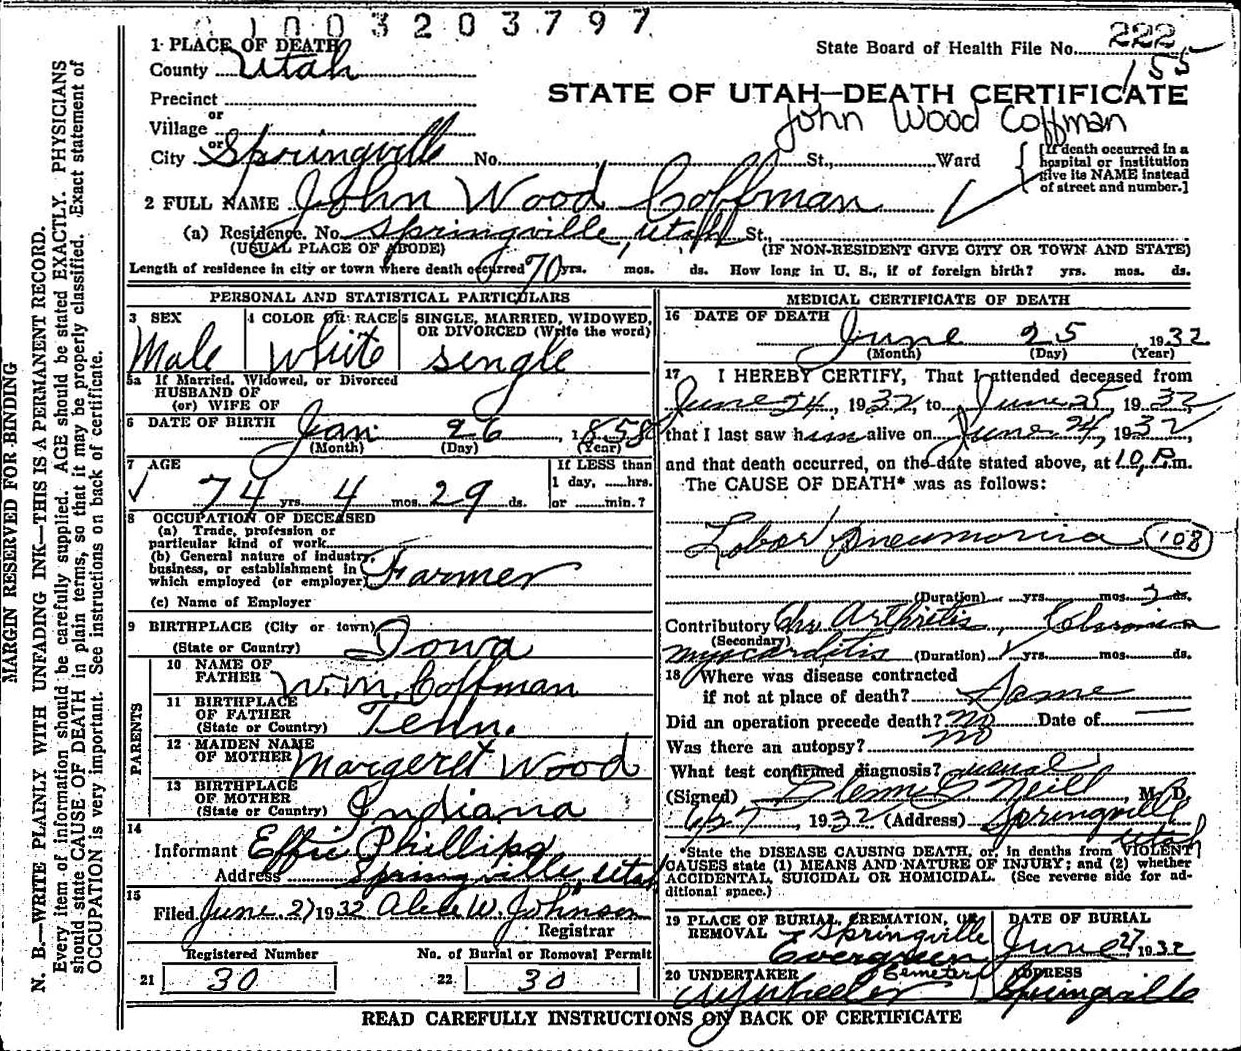 01003203797
1 PLACE OF DEATH
State Board of Health File No. 222
155
County Utah
Precinct
or
Village
or
STATE OF UTAH—DEATH CERTIFICATE
John Wood Coffman
City Springville No. St., Ward
[If death occurred in a hospital or institution give its NAME instead of street and number.]
2 FULL NAME John Wood Coffman
(a) Residence. No. Springville, Utah St.,
(USUAL PLACE OF ABODE) (IF NON-RESIDENT GIVE CITY OR TOWN AND STATE)
Length of residence in city or town where death occurred 70 yrs. mos. ds. How long in U. S., if of foreign birth? yrs. mos. ds.
PERSONAL AND STATISTICAL PARTICULARS
3 SEX
Male
4 COLOR OR RACE
White
5 SINGLE, MARRIED, WIDOWED, OR DIVORCED (Write the word)
single
5a If Married, Widowed, or Divorced
HUSBAND OF
(or) WIFE OF
6 DATE OF BIRTH Jan 26, 1858
(Month) (Day) (Year)
7 AGE
74 yrs. 4 mos. 29 ds.
If LESS than
1 day, hrs.
or min.?
8 OCCUPATION OF DECEASED
(a) Trade, profession or
particular kind of work
(b) General nature of industry,
business, or establishment in
which employed (or employer) Farmer
(c) Name of Employer
9 BIRTHPLACE (City or town)
(State or Country) Iowa
PARENTS
10 NAME OF
FATHER Wm. Coffman
11 BIRTHPLACE
OF FATHER
(State or Country) Tenn.
12 MAIDEN NAME
OF MOTHER Margeret Wood
13 BIRTHPLACE
OF MOTHER
(State or Country) Indiana
14
Informant Effie Phillips
Address Springville, Utah
15
Filed June 27 1932 Alice W. Johnson
Registrar
Registered Number
21 30
No. of Burial or Removal Permit
22 30
MEDICAL CERTIFICATE OF DEATH
16 DATE OF DEATH
June 25 1932
(Month) (Day) (Year)
17 I HEREBY CERTIFY, That I attended deceased from
June 24, 1932, to June 25, 1932,
that I last saw him alive on June 24, 1932,
and that death occurred, on the date stated above, at 10 P.m.
The CAUSE OF DEATH* was as follows:
Lobar Pneumonia 108
(Duration) yrs. mos. 3 ds.
Contributory Chr Arthritis, Chronic
(Secondary)
myocarditis (Duration) yrs. mos. ds.
18 Where was disease contracted
if not at place of death? Same
Did an operation precede death? no Date of
Was there an autopsy? no
What test confirmed diagnosis? usual
(Signed) Neill M. D.
6/27, 1932 (Address) Springville
Utah
*State the DISEASE CAUSING DEATH, or, in deaths from VIOLENT
CAUSES state (1) MEANS AND NATURE OF INJURY; and (2) whether
ACCIDENTAL, SUICIDAL OR HOMICIDAL. (See reverse side for additional space.)
19 PLACE OF BURIAL, CREMATION, OR
REMOVAL Springville
Evergreen
Cemetery
DATE OF BURIAL
June 27 1932
20 UNDERTAKER
Wheeler
ADDRESS
Springville
READ CAREFULLY INSTRUCTIONS ON BACK OF CERTIFICATE
MARGIN RESERVED FOR BINDING
N. B.—WRITE PLAINLY WITH UNFADING INK—THIS IS A PERMANENT RECORD.
Every item of information should be carefully supplied. AGE should be stated EXACTLY. PHYSICIANS
should state CAUSE OF DEATH in plain terms, so that it may be properly classified. Exact statement of
OCCUPATION is very important. See instructions on back of certificate.